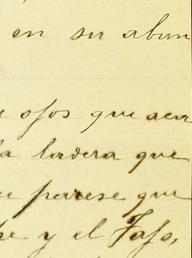 en su abun
ojos que aca
la ladera que
parese que
y el Tajo,